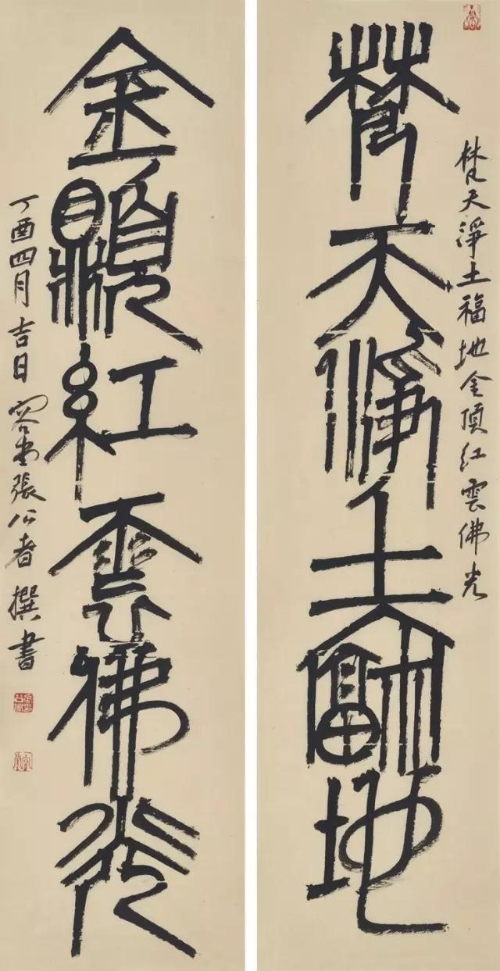 梵天淨土福地金頂紅雲佛光
梵天淨土福地
金頂紅雲佛光
丁酉四月吉日容堂張公者撰書